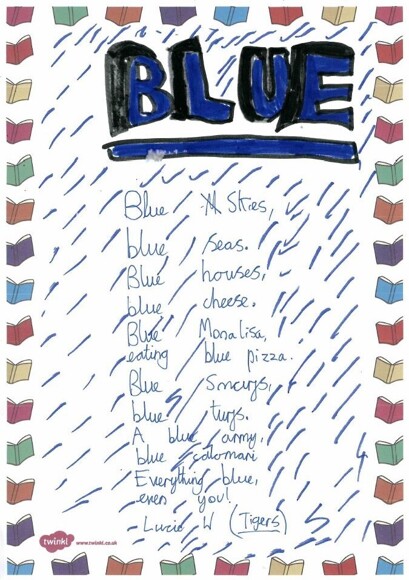 BLUE
Blue Skies,
blue seas.
Blue houses,
blue cheese.
Blue Monalisa,
eating blue pizza.
Blue smurfs,
blue turfs.
A blue army,
blue
Everything blue,
even you!
- W (Tigers)
twinkl www.twinkl.co.uk